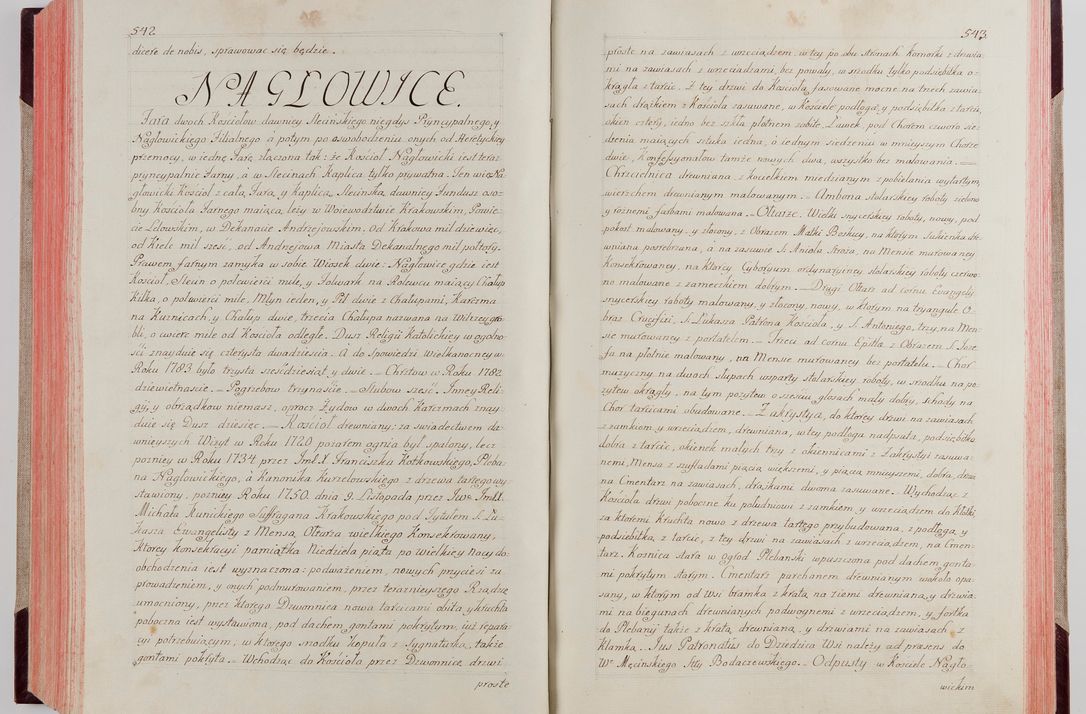 542
dicere de nobis, sprawowac się będzie.
NAGŁOWICE.
Fara dwoch Kosciołow dawniey Slecińskiego niegdys Pryncypalnego, y
Nagłowickiego Filialnego a potym po oswobodzeniu onych od Heretyckiey
przemocy, w iednę Farę złączona tak: że Kościoł Nagłowicki iest teraz
pryncypalnie Farny, a w Slecinach Kaplica tylko prywatna. Ten więc Na
głowicki Kościoł z całą Farą, y Kaplicą Slecinską dawniey Fundusz oso
bny Kościoła Farnego maiącą, leży w Woiewodztwie Krakowskim, Powie
cie Lelowskim, w Dekanacie Andrzejowskim, od Krakowa mil dziewięc,
od Kielc mil szesc, od Andrzejowa Miasta Dekanalnego mil połtory.
Prawem farnym zamyka w sobie Wiosek dwie: Nagłowice gdzie iest
Kościoł, Slecin o połwierci mile, y Folwark na Rolewcu maiący Chałup
kilka, o połwierci mile, Młyn ieden, y Pił dwie z Chałupami, Karczma
na Kuznicach, y Chałup dwie, trzecia Chałupa nazwana na Wilczey gro
bli, o cwierc mile od Kościoła odległe. Dusz Religii Katolickiey w ogolno
ści znayduie się czterysta dwadzieścia. A do Spowiedzi Wielkanocney w
Roku 1783 było trzysta szesćdziesiąt, y dwie. – Chrztow w Roku 1782
dziewietnascie. – Pogrzebow trzynascie. – Slubow szesć. Inney Reli
gii, y obrządkow niemasz, oprocz Żydow w dwoch Karczmach znay
duie się Dusz dziesięc. – Kościoł drewniany; za swiadectwem da
wnieyszych Wizyt w Roku 1720 pożarem ognia był spalony, lecz
pozniey w Roku 1734 przez Jmć X. Franciszka Kotkowskiego, Pleba
na Nagłowickiego, a Kanonika Kurzelowskiego z drzewa tartego wy
stawiony, pozniey Roku 1750. dnia 9. Listopada przez Jwo Jmć X.
Michała Kunickiego Suffragana Krakowskiego pod Tytułem S. Łu
kasza Ewangelisty z Mensą Ołtarza wielkiego Konsekrowany,
Ktorey konsekracyi pamiątka Niedziela piąta po Wielkiey Nocy do
obchodzenia iest wyznaczona: podważeniem, nowych przyciesi za
prowadzeniem, y onych podmurowaniem, przez teraznieyszego Rządzę
umocniony, przez ktorego Dzwonnica nowa tarcicami obita, y kruchta
poboczna iest wystawiona, pod dachem gontami pokrytym, iuż repara
cyi potrzebuiącym, w ktorego srodku kopuła z Sygnaturką, także
gontami pokryta. – Wchodząc do Kościoła przez Dzwonnicę, drzwi
proste
543
proste na zawiasach z wrzeciądzem, w tey po obu stronach Komorki z drzwia
mi na zawiasach z wrzeciadzami, bez powały, w srzodku tylko podsiebitka o
krągła z tarcic. Z tey drzwi do Kościoła fasowane mocne na trzech zawia
sach drążkiem z Kościoła zasuwane, w Kościele podłoga, y podsiebitka z tarcic,
okien cztery, iedno bez szkła płotnem zabite, Ławek pod Chorem czworo sie
dzenia maiących sztuka iedna, o iednym siedzeniu w mnieyszym Chorze
dwie, Konfessyonałow tamże nowych dwa, wszystko bez malowania. –
Chrzcielnica drewniana z kociełkiem miedzianym z pobielania wytartym,
wierzchem drewnianym malowanym. – Ambona stolarskiey roboty zielono
y rożnemi farbami malowana. – Ołtarze. Wielki snycerskiey roboty, nowy, pod
pokost malowany, y złocony, z Obrazem Matki Boskiey, na ktorym Sukienka dre
wniana posrebrzana, a na zasuwie S. Anioła Stroża, na Mensie murowaney
Konsekrowaney, na ktorey Cyboryum ordynaryiney stolarskiey roboty czerwo
no malowane z zameczkiem dobrym. – Drugi Ołtarz ad cornu Evangelij
snycerskiey roboty malowany, y złocony, nowy, w ktorym na tryangule O
braz Crucifixi, S. Łukasza Patrona Kościoła, y S. Antoniego, trzy, na Men
sie murowaney z portatelem. – Trzeci ad cornu Epistlæ z Obrazem S. Joze
fa na płotnie malowany, na Mensie murowaney bez portatelu. – Chor
muzyczny na dwoch słupach wsparty stolarskiey roboty, w srzodku na po
zytew okrągły, na tym pozytew o szesciu głosach mały dobry, schody na
Chor tarcicami obudowane. – Zakrystya, do ktorey drzwi na zawiasach
z zamkiem, y wrzeciądzem, drewniana, w tey podłoga nadpsuta, podsiebitka
dobra z tarcic, okienek małych trzy z okiennicami z Zakrystyi zasuwa
nemi, Mensa z szufladami piącią większemi, y piącią mnieyszemi, dobra, drzwi
na Cmentarz na zawiasach, drążkami dwoma zasuwane. – Wychodząc z
Kościoła drzwi poboczne ku południowi z zamkiem, y wrzeciądzem do kłotki
za ktoremi kruchta nowo z drzewa tartego przybudowana, z podłogą, y
podsiebitką z tarcic, z tey drzwi na zawiasach z wrzeciądzem, na Cmen
tarz. Kosnica stara w ogrod Plebański wpuszczona pod dachem gonta
mi pokrytym starym. Cmentarz parchanem drewnianym wokoło opa
sany, w ktorym od Wsi bramka z kratą na ziemi drewnianą, y drzwia
mi na biegunach drewnianych podwoynemi z wrzeciądzem, y fortka
do Plebanij także z kratą drewnianą, y drzwiami na zawiasach z
klamką. Jus Patronatûs do Dziedzica Wsi należy ad præsens do
Wo Męcinskiego Stty Bodaczewskiego. – Odpusty w Kościele Nagło
wickim